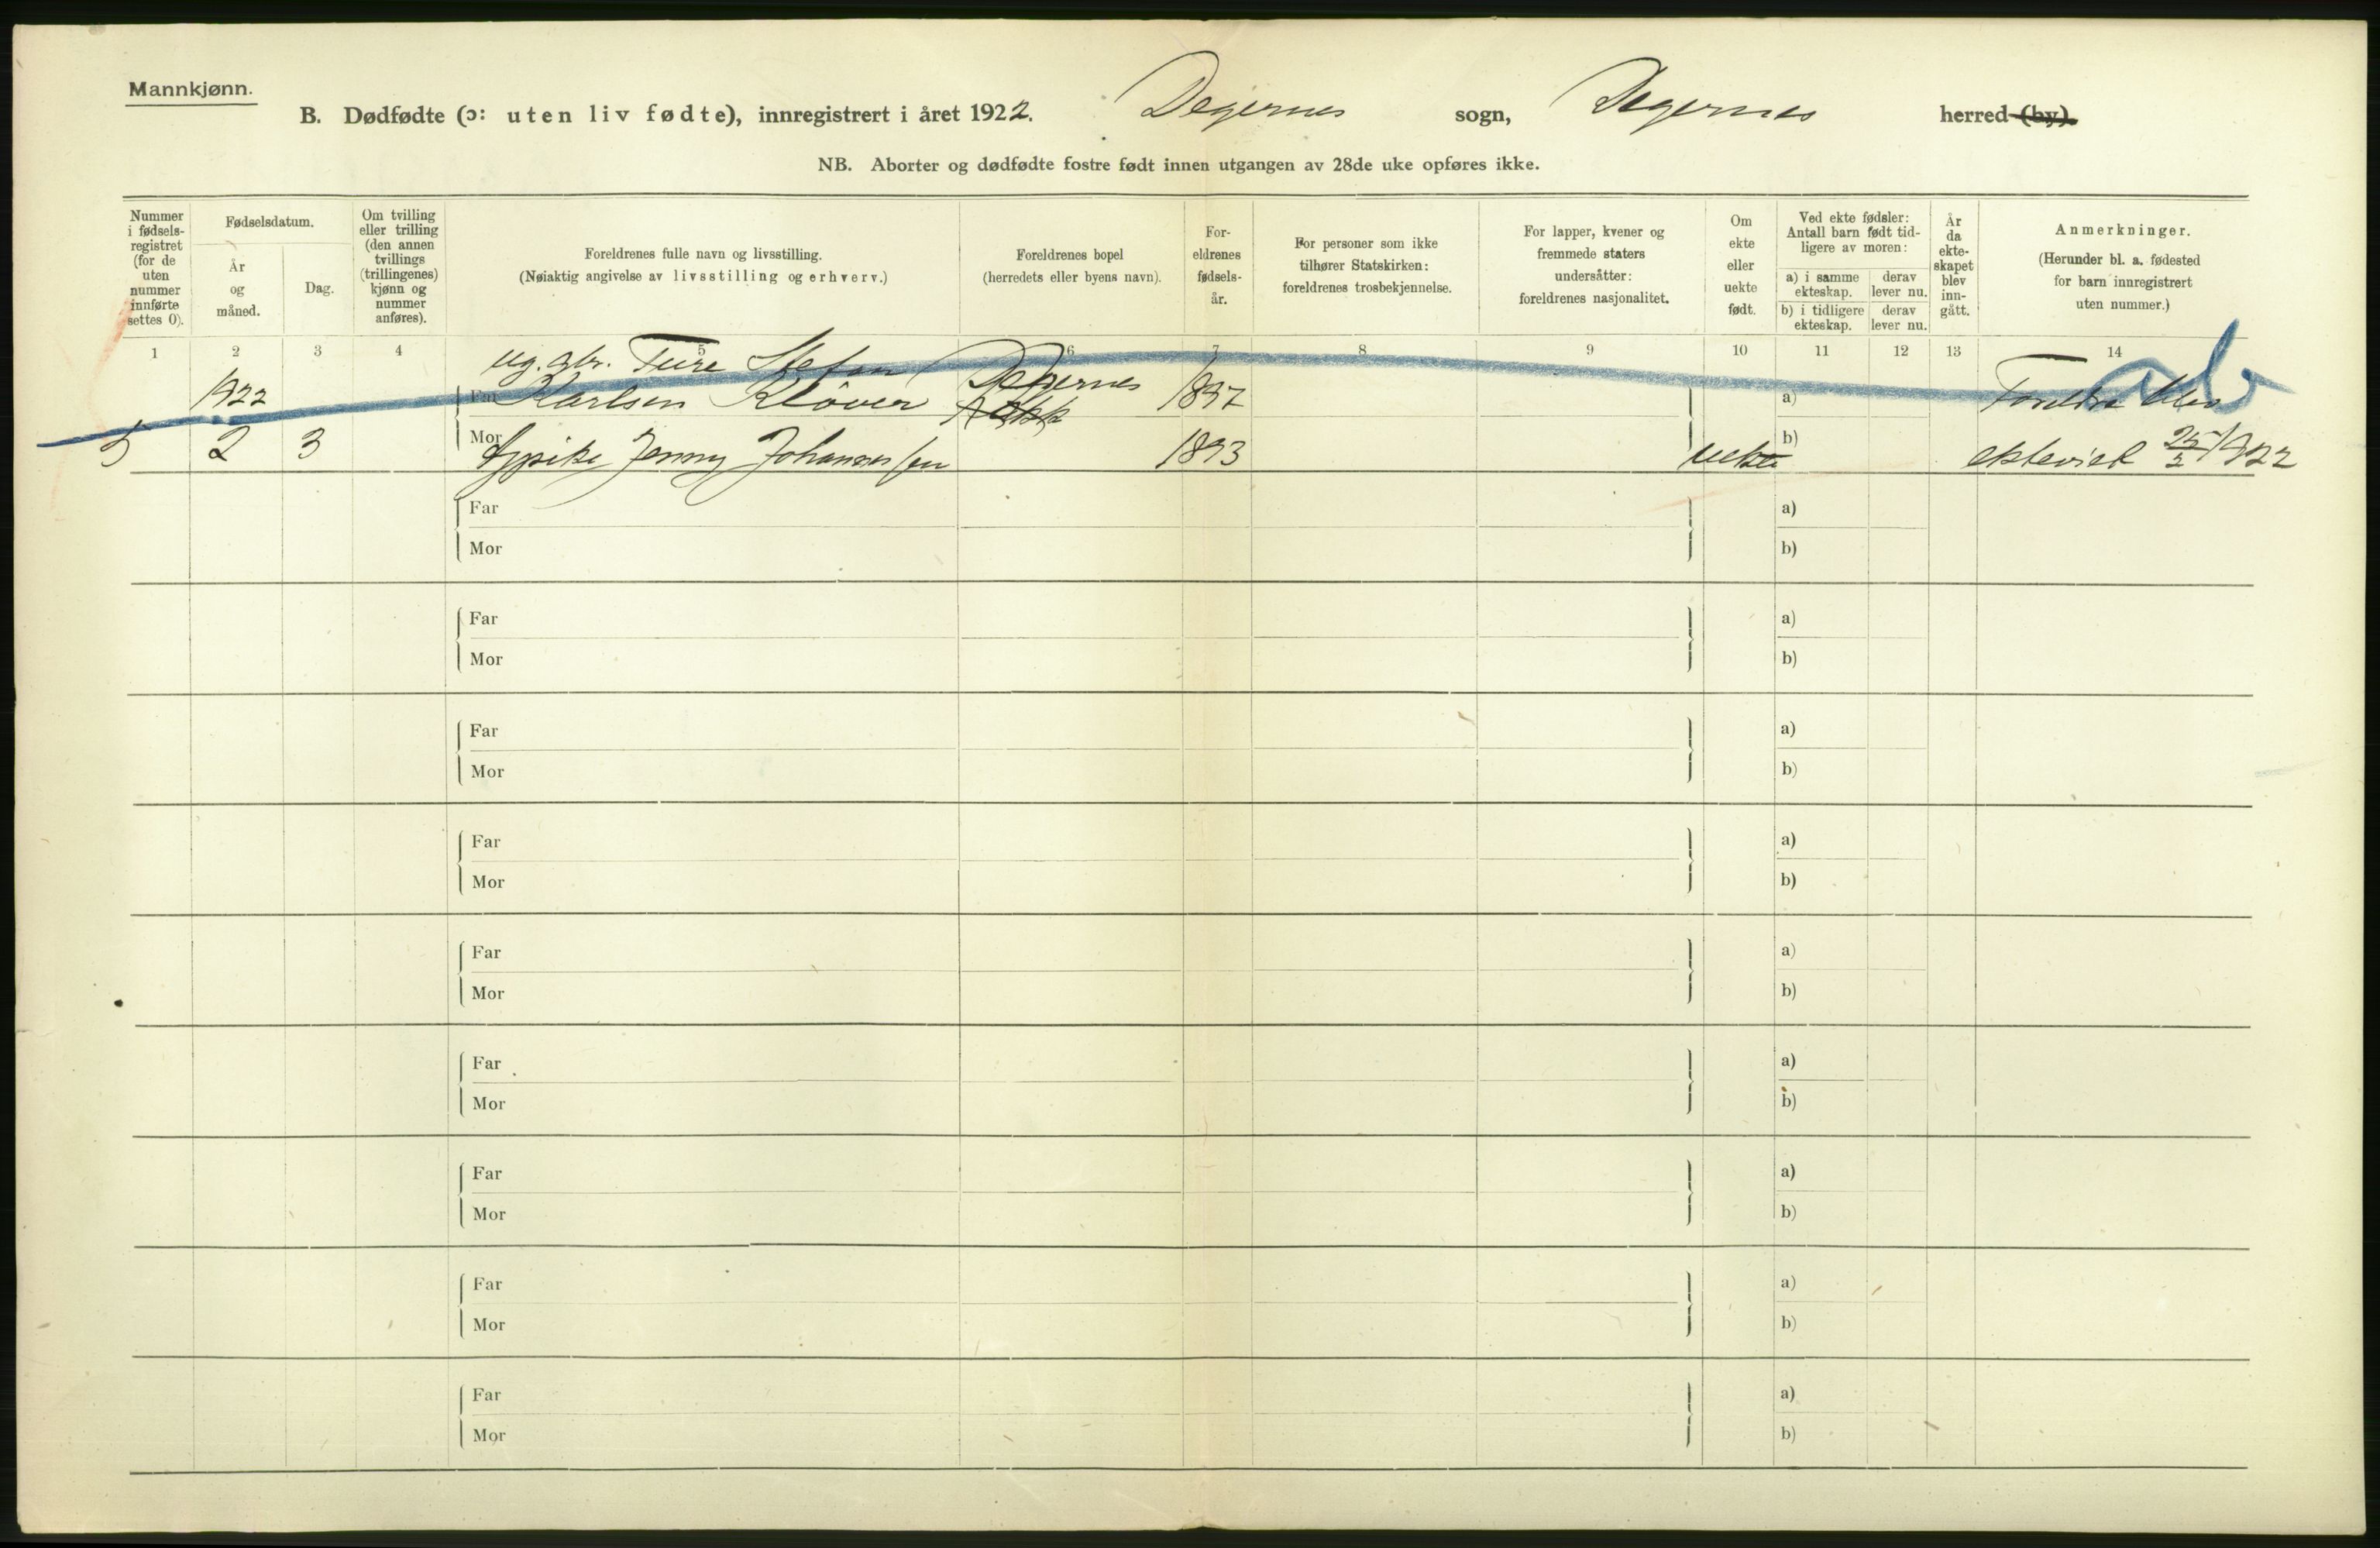 Mannkjønn.
B. Dødfødte (ɔ: uten liv fødte), innregistrert i året 1922. Degernes sogn, Degernes herred (by).
NB. Aborter og dødfødte fostre født innen utgangen av 28de uke opføres ikke.
Nummer i fødsels-registret (for de uten nummer innførte settes 0).
Fødselsdatum.
År og måned.
Dag.
Om tvilling eller trilling (den annen tvillings (trillingenes) kjønn og nummer anføres).
Foreldrenes fulle navn og livsstilling.
(Nøiaktig angivelse av livsstilling og erhverv.)
Foreldrenes bopel
(herredets eller byens navn).
For-eldrenes fødsels-år.
For personer som ikke tilhører Statskirken: foreldrenes trosbekjennelse.
For lapper, kvener og fremmede staters undersåtter: foreldrenes nasjonalitet.
Om ekte eller uekte født.
Ved ekte fødsler: Antall barn født tid-ligere av moren:
a) i samme ekteskap.
derav lever nu.
b) i tidligere ekteskap.
derav lever nu.
År da ekte-skapet blev inn-gått.
Anmerkninger.
(Herunder bl. a. fødested for barn innregistrert uten nummer.)
1 2 3 4 5 6 7 8 9 10 11 12 13 14
ug. gbr. Ture Stefan Degernes
1922 Far Karlsen Kløver 1897 a) Foreldre blev
5 2 3 Mor Jenny Johannessen 1893 uekte b) ekteviet 25/2 1922
Far a)
Mor b)
Far a)
Mor b)
Far a)
Mor b)
Far a)
Mor b)
Far a)
Mor b)
Far a)
Mor b)
Far a)
Mor b)
Far a)
Mor b)
Far a)
Mor b)